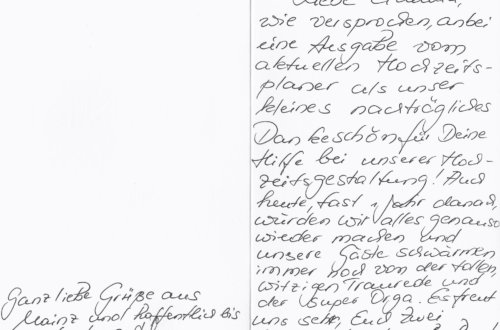 wie versprochen, anbei
eine Ausgabe vom
aktuellen Hochzeits-
planer als unser
kleines nachträgliches
Dankeschön für Deine
Hilfe bei unserer Hoch-
zeitsgestaltung! Auch
heute, fast 1 Jahr danach,
würden wir alles genauso
wieder machen und
unsere Gäste schwärmen
immer noch von der tollen,
witzigen Traurede und
der super Orga. Es freut
uns sehr, Euch zwei
Ganz liebe Grüße aus
Mainz und hoffentlich bis